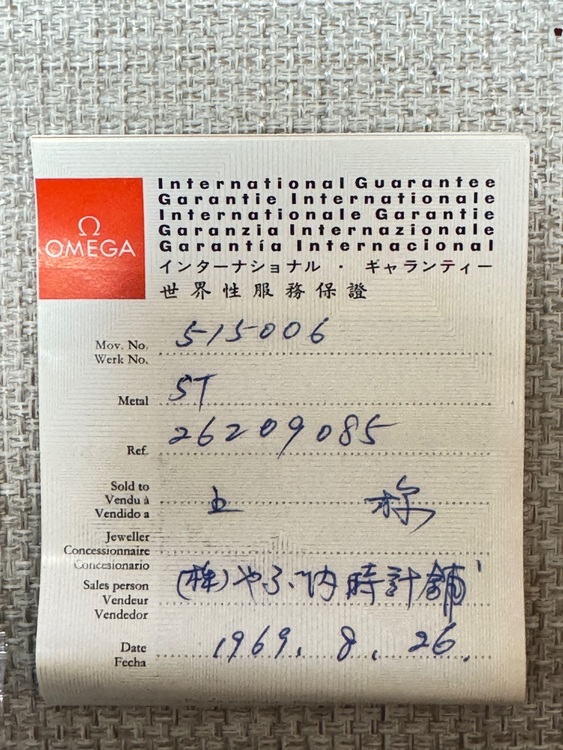 Ω
OMEGA
International Guarantee
Garantie Internationale
Internationale Garantie
Garanzia Internazionale
Garantía Internacional
インターナショナル・ギャランティー
世界性服務保證
Mov. No. 515006
Werk No.
Metal ST
Ref. 26209085
Sold to
Vendu à
Vendido a
Jeweller
Concessionnaire
Concesionario
Sales person (株)やぶ内時計舗
Vendeur
Vendedor
Date 1969. 8. 26.
Fecha